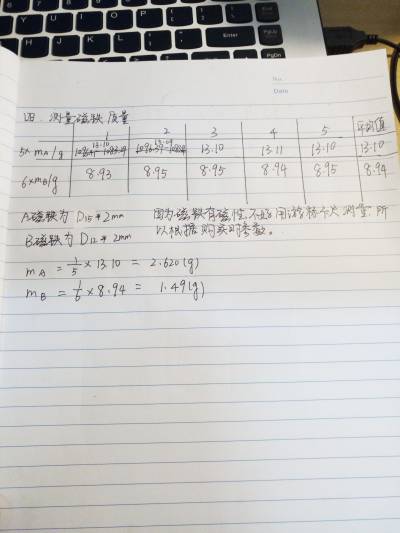 PgUp
Enter
Shift
PgDn
No.
Date
四. 测量磁铁质量
1 2 3 4 5 平均值
13.10 13.09
5×mA/g 13.10 13.11 13.10 13.10
6×mB/g 8.93 8.95 8.95 8.94 8.95 8.94
A磁铁为 D15*2mm 因为磁铁有磁性,不好用游标卡尺测量.所
B磁铁为 D12*2mm 以根据购买时参数。
mA = 1/5 × 13.10 = 2.620(g)
mB = 1/6 × 8.94 = 1.49(g)